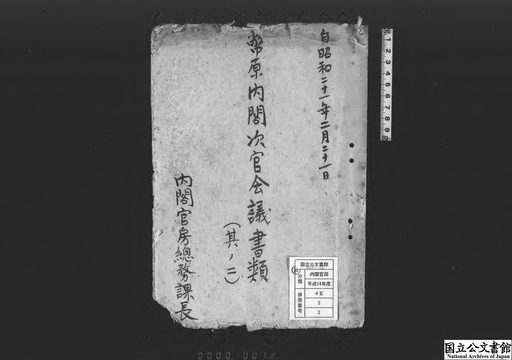 自昭和二十一年二月二十一日
幣原内閣次官会議書類
(其ノ二)
内閣官房總務課長
国立公文書館
分類
内閣官房
平成14年度
排架番号
4E
3
3
1 2 3 4 5 6 7 8 9
0000 0012
国立公文書館
National Archives of Japan